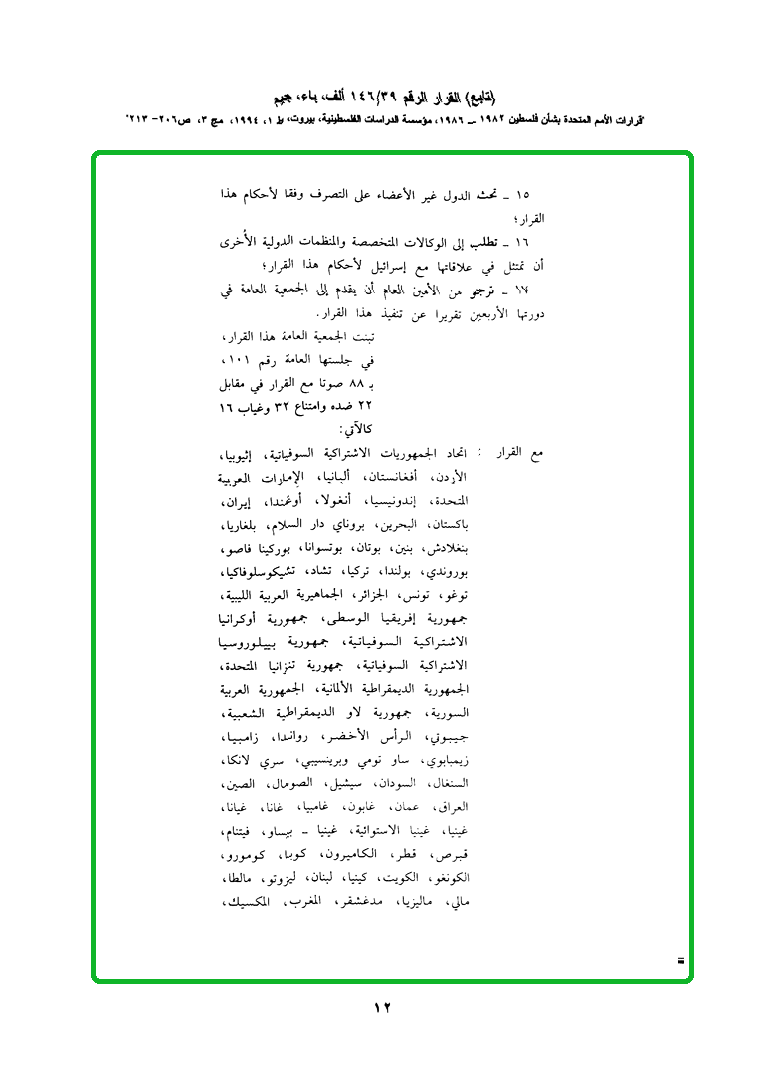 (تابع) القرار الرقم ١٤٦/٣٩ ألف، باء، جيم
"قرارات الأمم المتحدة بشأن فلسطين ١٩٨٢ ــ ١٩٨٦، مؤسسة الدراسات الفلسطينية، بيروت، ط ١، ١٩٩٤، مج ٣، ص٢٠٦- ٢١٣"
١٥ ــ تحث الدول غير الأعضاء على التصرف وفقا لأحكام هذا
القرار؛
١٦ ــ تطلب إلى الوكالات المتخصصة والمنظمات الدولية الأخرى
أن تمتثل في علاقاتها مع إسرائيل لأحكام هذا القرار؛
١٧ ــ ترجو من الأمين العام أن يقدم إلى الجمعية العامة في
دورتها الأربعين تقريرا عن تنفيذ هذا القرار.
تبنت الجمعية العامة هذا القرار،
في جلستها العامة رقم ١٠١،
بـ ٨٨ صوتا مع القرار في مقابل
٢٢ ضده وامتناع ٣٢ وغياب ١٦
كالآتي:
مع القرار : اتحاد الجمهوريات الاشتراكية السوفياتية، إثيوبيا،
الأردن، أفغانستان، ألبانيا، الإمارات العربية
المتحدة، إندونيسيا، أنغولا، أوغندا، إيران،
باكستان، البحرين، بروناي دار السلام، بلغاريا،
بنغلادش، بنين، بوتان، بوتسوانا، بوركينا فاصو،
بوروندي، بولندا، تركيا، تشاد، تشيكوسلوفاكيا،
توغو، تونس، الجزائر، الجماهيرية العربية الليبية،
جمهورية إفريقيا الوسطى، جمهورية أوكرانيا
الاشتراكية السوفياتية، جمهورية بييلوروسيا
الاشتراكية السوفياتية، جمهورية تنزانيا المتحدة،
الجمهورية الديمقراطية الألمانية، الجمهورية العربية
السورية، جمهورية لاو الديمقراطية الشعبية،
جيبوتي، الرأس الأخضر، رواندا، زامبيا،
زيمبابوي، ساو تومي وبرينسيبي، سري لانكا،
السنغال، السودان، سيشيل، الصومال، الصين،
العراق، عمان، غابون، غامبيا، غانا، غيانا،
غينيا، غينيا الاستوائية، غينيا ــ بيساو، فيتنام،
قبرص، قطر، الكاميرون، كوبا، كومورو،
الكونغو، الكويت، كينيا، لبنان، ليزوتو، مالطا،
مالي، ماليزيا، مدغشقر، المغرب، المكسيك،
=
١٢